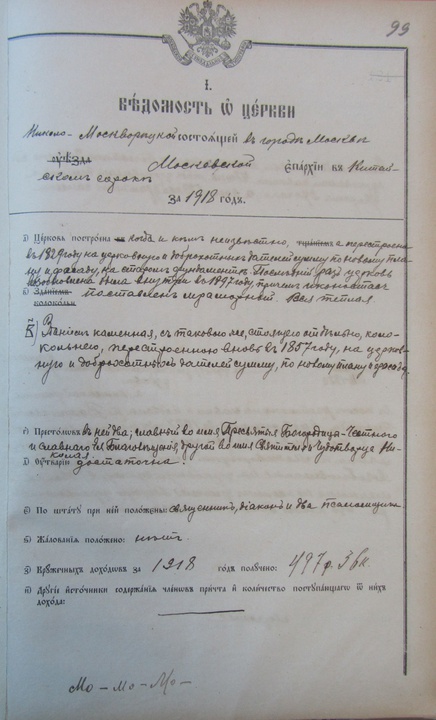 99
I.
Вѣдомость ѡ церкви
Николо-Москворѣцкой состоящей въ городѣ Москвѣ
уѣзда Московской епархіи въ Китай-
скомъ сорокѣ
за 1918 годъ.
а) Церковь построена въ когда и кѣмъ неизвѣстно, а перестроена
въ 1829 году на церковную и доброхотныхъ дателей сумму по новому пла-
ну и фасаду, на старомъ фундаментѣ. Послѣдній разъ церковь
была внутри въ 1897 году, причемъ иконостасъ
б) Зданіемъ поставленъ мраморный. теплая
колокольн
в) Зданіемъ каменная, съ таковою же, стоящею отдѣльно, коло-
кольнею, перестроенною вновь въ 1857 году, на церков-
ную и доброхотныхъ дателей сумму, по новому плану и фасаду.
г) Престоловъ въ ней два; главный во имя Пресвятыя Богородицы Честнаго
и славнаго Ея Благовѣщенія, другой во имя Святителя Чудотворца Ни-
колая
д) Оутварію достаточна.
е) По штату при ней положены: священникъ, діаконъ и два псаломщика
ж) Жалованія положено: нѣтъ.
з) Кружечныхъ доходовъ за 1918 годъ получено: 497 р. 36 к.
и) Другіе источники содержанія членовъ причта и количество поступающаго ѿ нихъ
дохода:
Мо – мо – Мо –